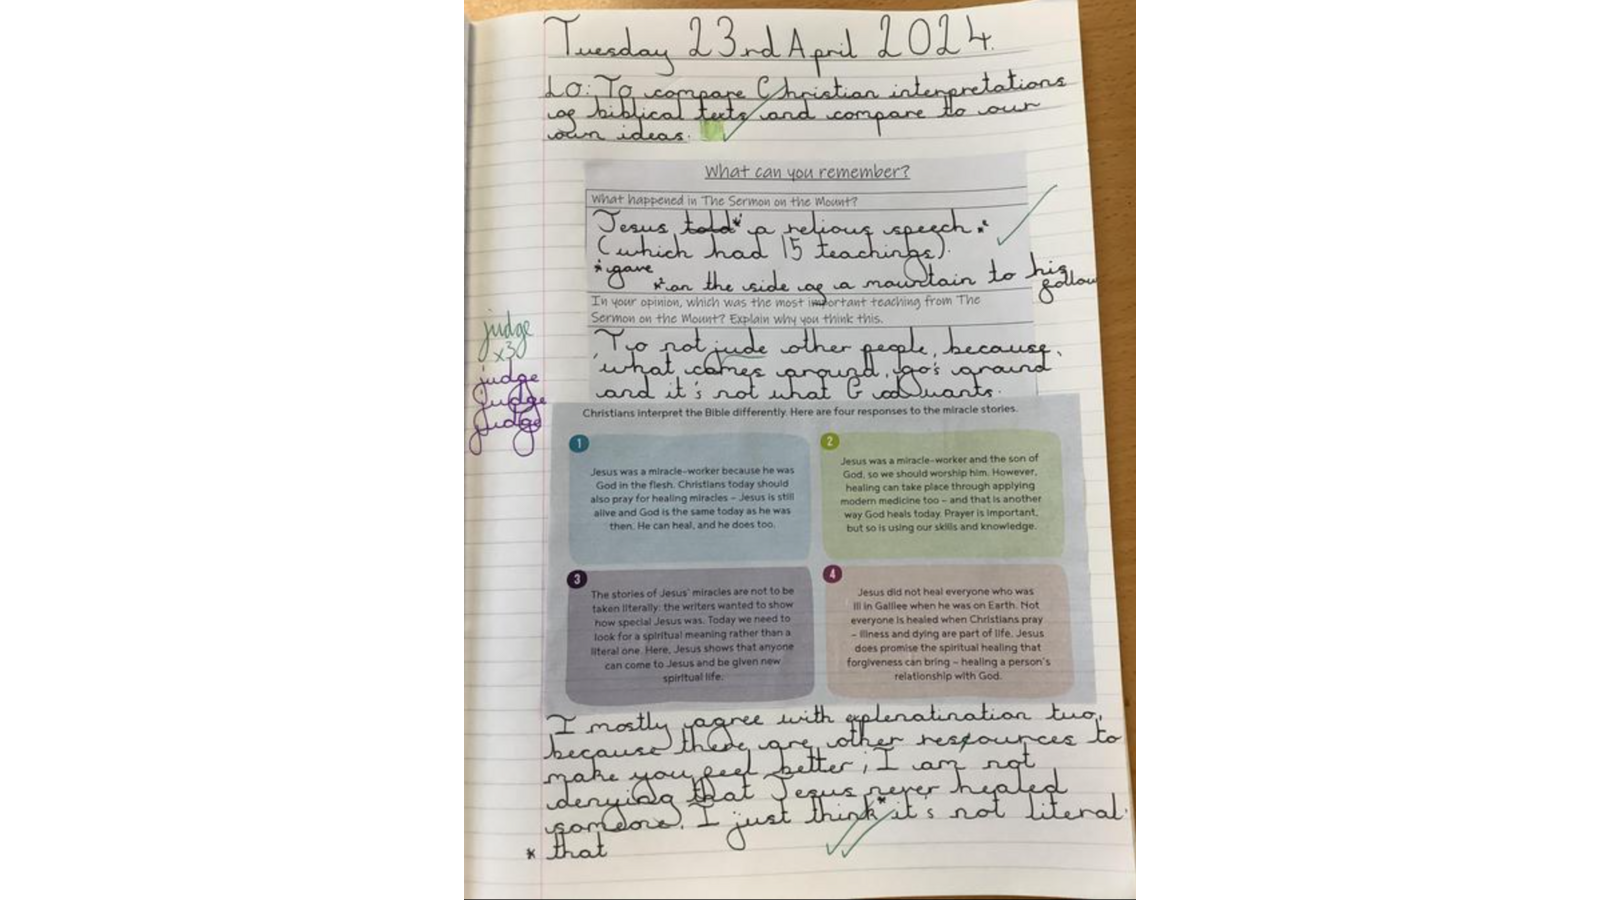 Tuesday 23rd April 2024.
LO: To compare Christian interpretations
of biblical texts and compare to our
own ideas.
What can you remember?
What happened in The Sermon on the Mount?
Jesus told* a relious speech.*
(which had 15 teachings).
*gave
*on the side of a mountain to his
follow
In your opinion, which was the most important teaching from The
Sermon on the Mount? Explain why you think this.
To not jude other people, because,
what comes around, go's around
and it's not what God wants.
judge
x3
judge
judge
judge
Christians interpret the Bible differently. Here are four responses to the miracle stories.
1
Jesus was a miracle-worker because he was
God in the flesh. Christians today should
also pray for healing miracles – Jesus is still
alive and God is the same today as he was
then. He can heal, and he does too.
2
Jesus was a miracle-worker and the son of
God, so we should worship him. However,
healing can take place through applying
modern medicine too – and that is another
way God heals today. Prayer is important,
but so is using our skills and knowledge.
3
The stories of Jesus' miracles are not to be
taken literally: the writers wanted to show
how special Jesus was. Today we need to
look for a spiritual meaning rather than a
literal one. Here, Jesus shows that anyone
can come to Jesus and be given new
spiritual life.
4
Jesus did not heal everyone who was
ill in Galilee when he was on Earth. Not
everyone is healed when Christians pray
– illness and dying are part of life. Jesus
does promise the spiritual healing that
forgiveness can bring – healing a person's
relationship with God.
I mostly agree with explenatination two,
because there are other resources to
make you feel better; I am not
denying that Jesus never healed
someone, I just think* it's not literal.
* that